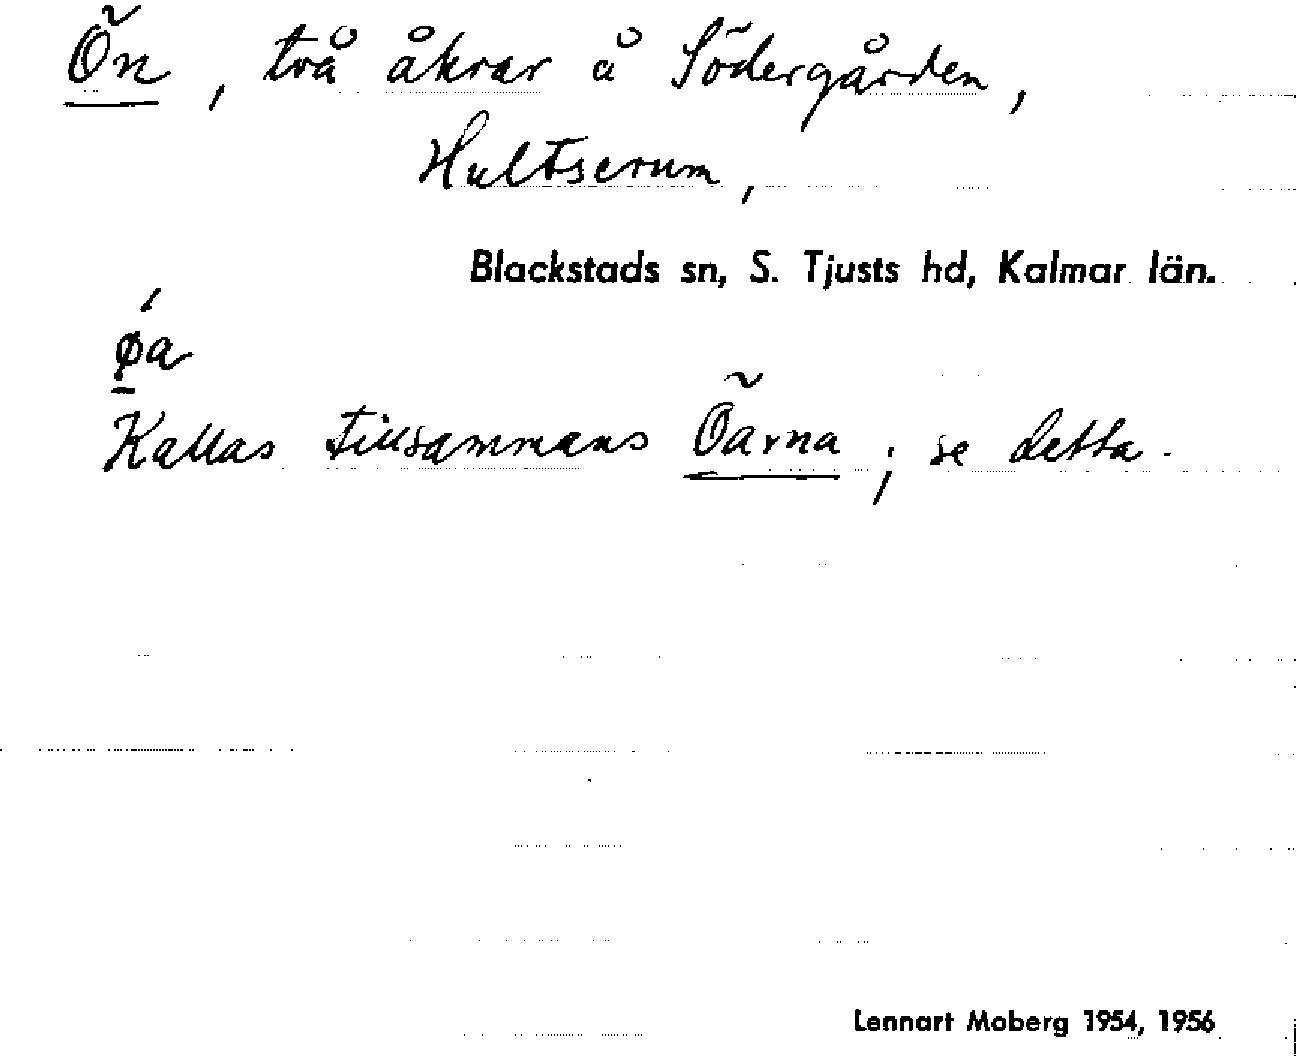 Ön, två åkrar å Södergården,
Hultserum,
Blackstads sn, S. Tjusts hd, Kalmar län.
øa
Kallas tillsammans Öarna; se detta.
Lennart Moberg 1954, 1956